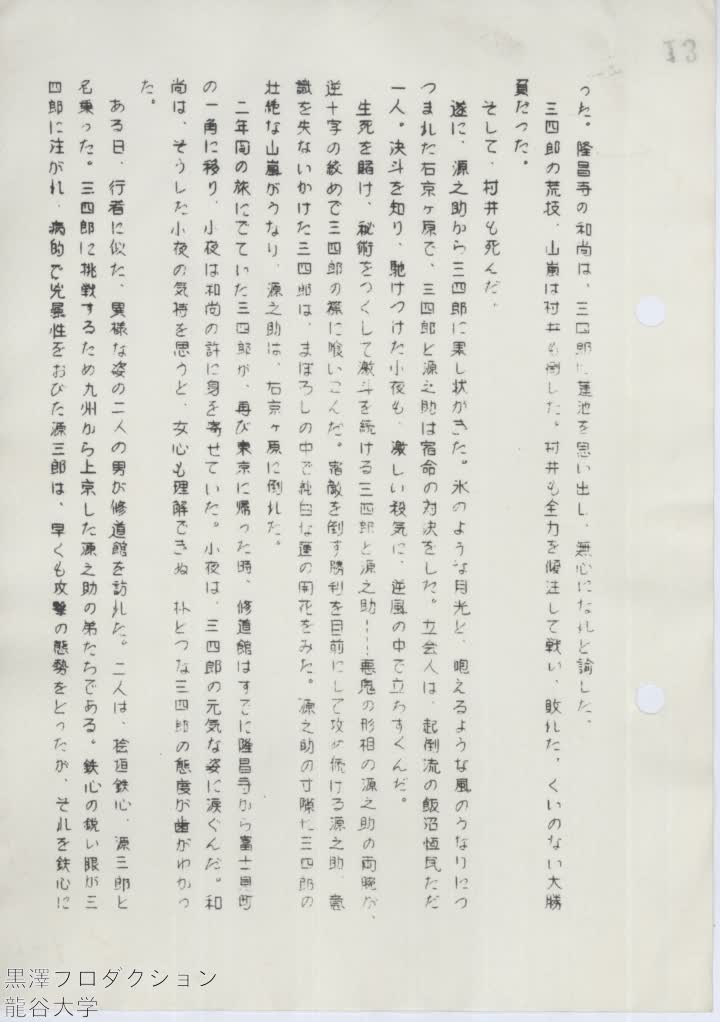 13
った。隆昌寺の和尚は、三四郎に蓮池を思い出し、無心になれと諭した。
三四郎の荒技、山嵐は村井も倒した。村井も全力を傾注して戦い、敗れた、くいのない大勝
負だった。
そして、村井も死んだ。
遂に、源之助から三四郎に果し状がきた。氷のような月光と、咆えるような風のうなりにつ
つまれた右京ヶ原で、三四郎と源之助は宿命の対決をした。立会人は、起倒流の飯沼恒民ただ
一人。決斗を知り、馳けつけた小夜も、激しい殺気に、逆風の中で立わすくんだ。
生死を賭け、秘術をつくして激斗を続ける三四郎と源之助……悪鬼の形相の源之助の両腕が、
逆十字の絞めで三四郎の襟に喰いこんだ。宿敵を倒す勝利を目前にして攻め続ける源之助、意
識を失ないかけた三四郎は、まぼろしの中で純白な蓮の開花をみた。源之助の寸隙に三四郎の
壮絶な山嵐がうなり、源之助は、右京ヶ原に倒れた。
二年間の旅にでていた三四郎が、再び東京に帰った時、修道館はすでに隆昌寺から富士見町
の一角に移り、小夜は和尚の許に身を寄せていた。小夜は、三四郎の元気な姿に涙ぐんだ。和
尚は、そうした小夜の気持を思うと、女心も理解できぬ 朴とつな三四郎の態度が歯がゆかっ
た。
ある日、行者に似た、異様な姿の二人の男が修道館を訪れた。二人は、桧垣鉄心、源三郎と
名乗った。三四郎に挑戦するため九州から上京した源之助の弟たちである。鉄心の鋭い眼が三
四郎に注がれ、病的で兇属性をおびた源三郎は、早くも攻撃の態勢をとったが、それを鉄心に
黒澤フロダクション
龍谷大学